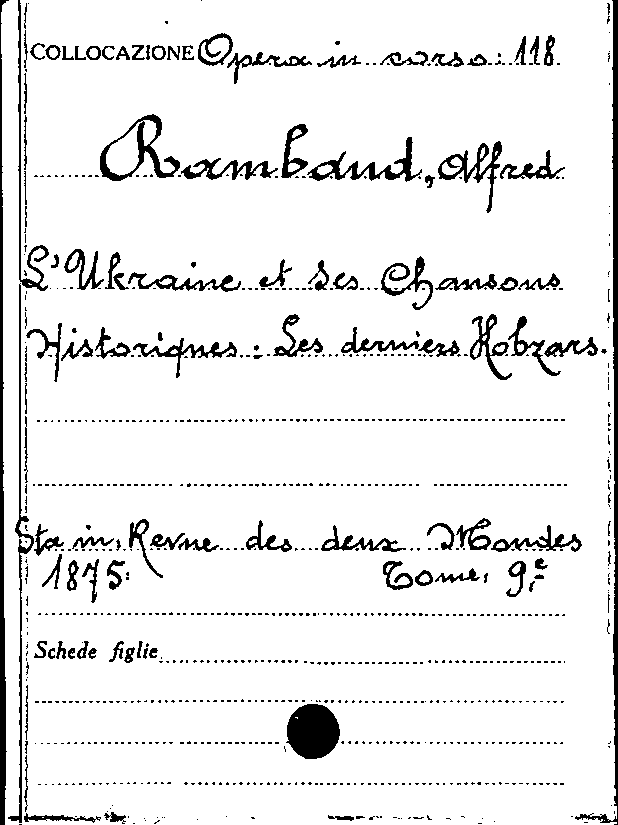 COLLOCAZIONE Opera in corso: 118
Rambaud, Alfred
L'Ukraine et ses Chansons
Historiques: Les derniers Kobzars.
Sta in, Revue des deux Mondes
1875. Tome, 9e
Schede figlie